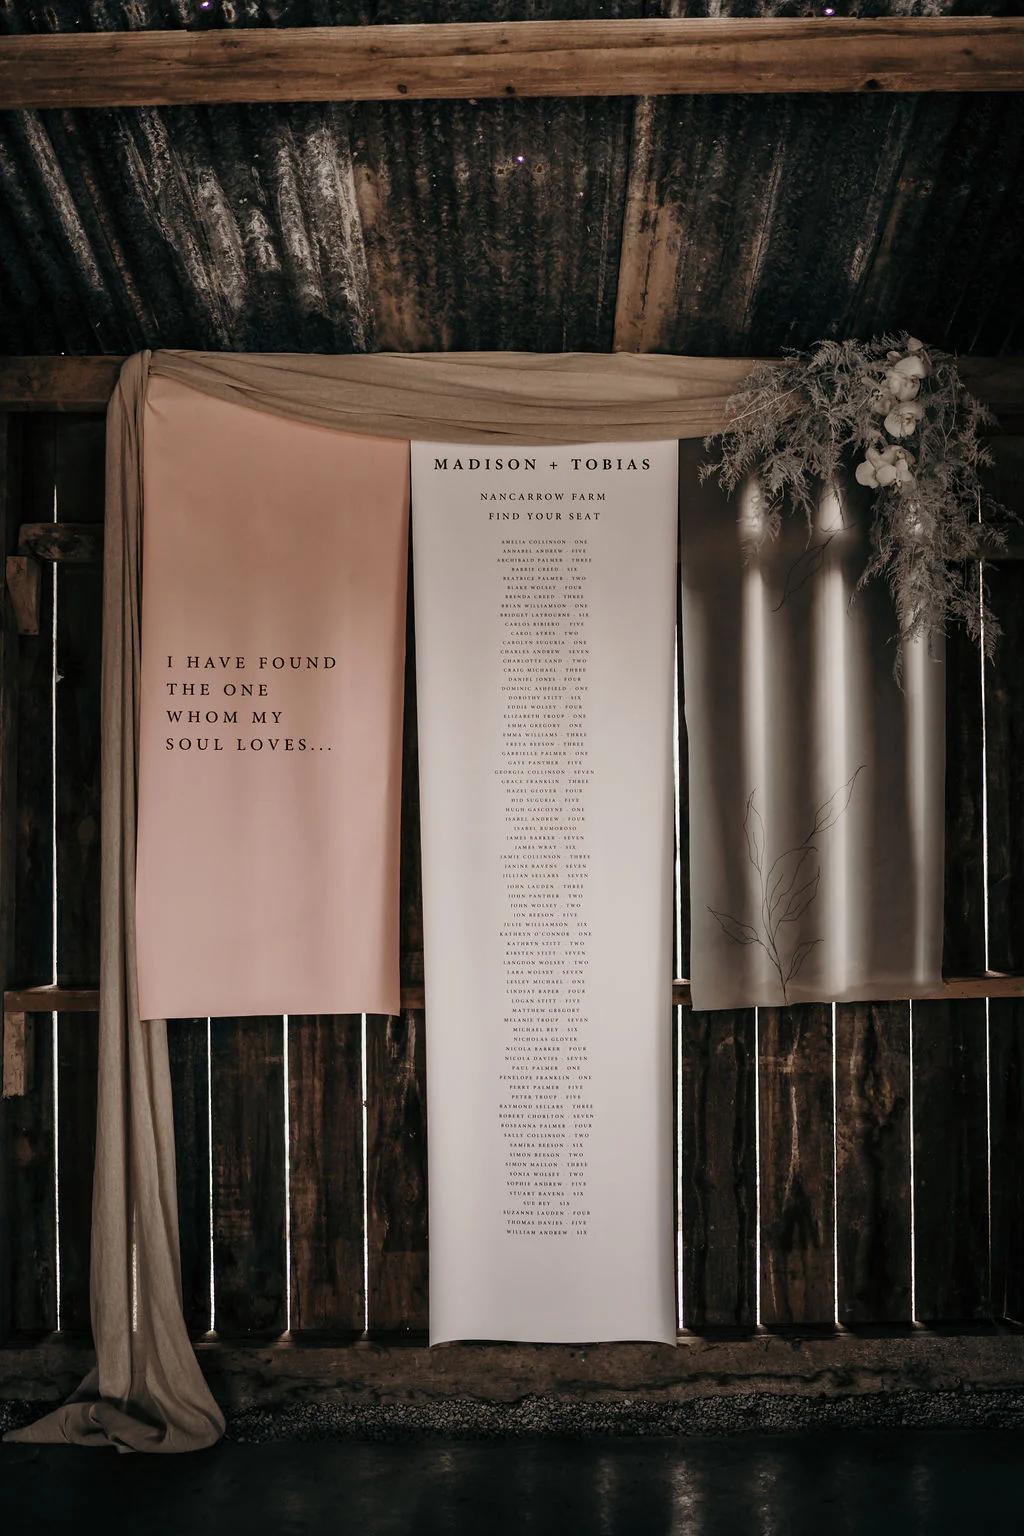 I HAVE FOUND
THE ONE
WHOM MY
SOUL LOVES...
MADISON + TOBIAS
NANCARROW FARM
FIND YOUR SEAT
AMELIA COLLINSON · ONE
ANNABEL ANDREW · FIVE
ARCHIBALD PALMER · THREE
BARRIE CREED · SIX
BEATRICE PALMER · TWO
BLAKE WOLSEY · FOUR
BRENDA CREED · THREE
BRIAN WILLIAMSON · ONE
BRIDGET LAYBOURNE · SIX
CARLOS RIBIERO · FIVE
CAROL AYRES · TWO
CAROLYN SUGURIA · ONE
CHARLES ANDREW · SEVEN
CHARLOTTE LAND · TWO
CRAIG MICHAEL · THREE
DANIEL JONES · FOUR
DOMINIC ASHFIELD · ONE
DOROTHY STITT · SIX
EDDIE WOLSEY · FOUR
ELIZABETH TROUP · ONE
EMMA GREGORY · ONE
EMMA WILLIAMS · THREE
FREYA BEESON · THREE
GABRIELLE PALMER · ONE
GAYE PANTHER · FIVE
GEORGIA COLLINSON · SEVEN
GRACE FRANKLIN · THREE
HAZEL GLOVER · FOUR
HID SUGURIA · FIVE
HUGH GASCOYNE · ONE
ISABEL ANDREW · FOUR
ISABEL RUMOROSO
JAMES BARKER · SEVEN
JAMES WRAY · SIX
JAMIE COLLINSON · THREE
JANINE RAVENS · SEVEN
JILLIAN SELLARS · SEVEN
JOHN LAUDEN · THREE
JOHN PANTHER · TWO
JOHN WOLSEY · TWO
JON BEESON · FIVE
JULIE WILLIAMSON · SIX
KATHRYN O'CONNOR · ONE
KATHRYN STITT · TWO
KIRSTEN STITT · SEVEN
LANGDON WOLSEY · TWO
LARA WOLSEY · SEVEN
LESLEY MICHAEL · ONE
LINDSAY RAPER · FOUR
LOGAN STITT · FIVE
MATTHEW GREGORY
MELANIE TROUP · SEVEN
MICHAEL BEY · SIX
NICHOLAS GLOVER
NICOLA BARKER · FOUR
NICOLA DAVIES · SEVEN
PAUL PALMER · ONE
PENELOPE FRANKLIN · ONE
PERRY PALMER · FIVE
PETER TROUP · FIVE
RAYMOND SELLARS · THREE
ROBERT CHORLTON · SEVEN
ROSEANNA PALMER · FOUR
SALLY COLLINSON · TWO
SAMIRA BEESON · SIX
SIMON BEESON · TWO
SIMON MALLON · THREE
SONIA WOLSEY · TWO
SOPHIE ANDREW · FIVE
STUART RAVENS · SIX
SUE BEY · SIX
SUZANNE LAUDEN · FOUR
THOMAS DAVIES · FIVE
WILLIAM ANDREW · SIX